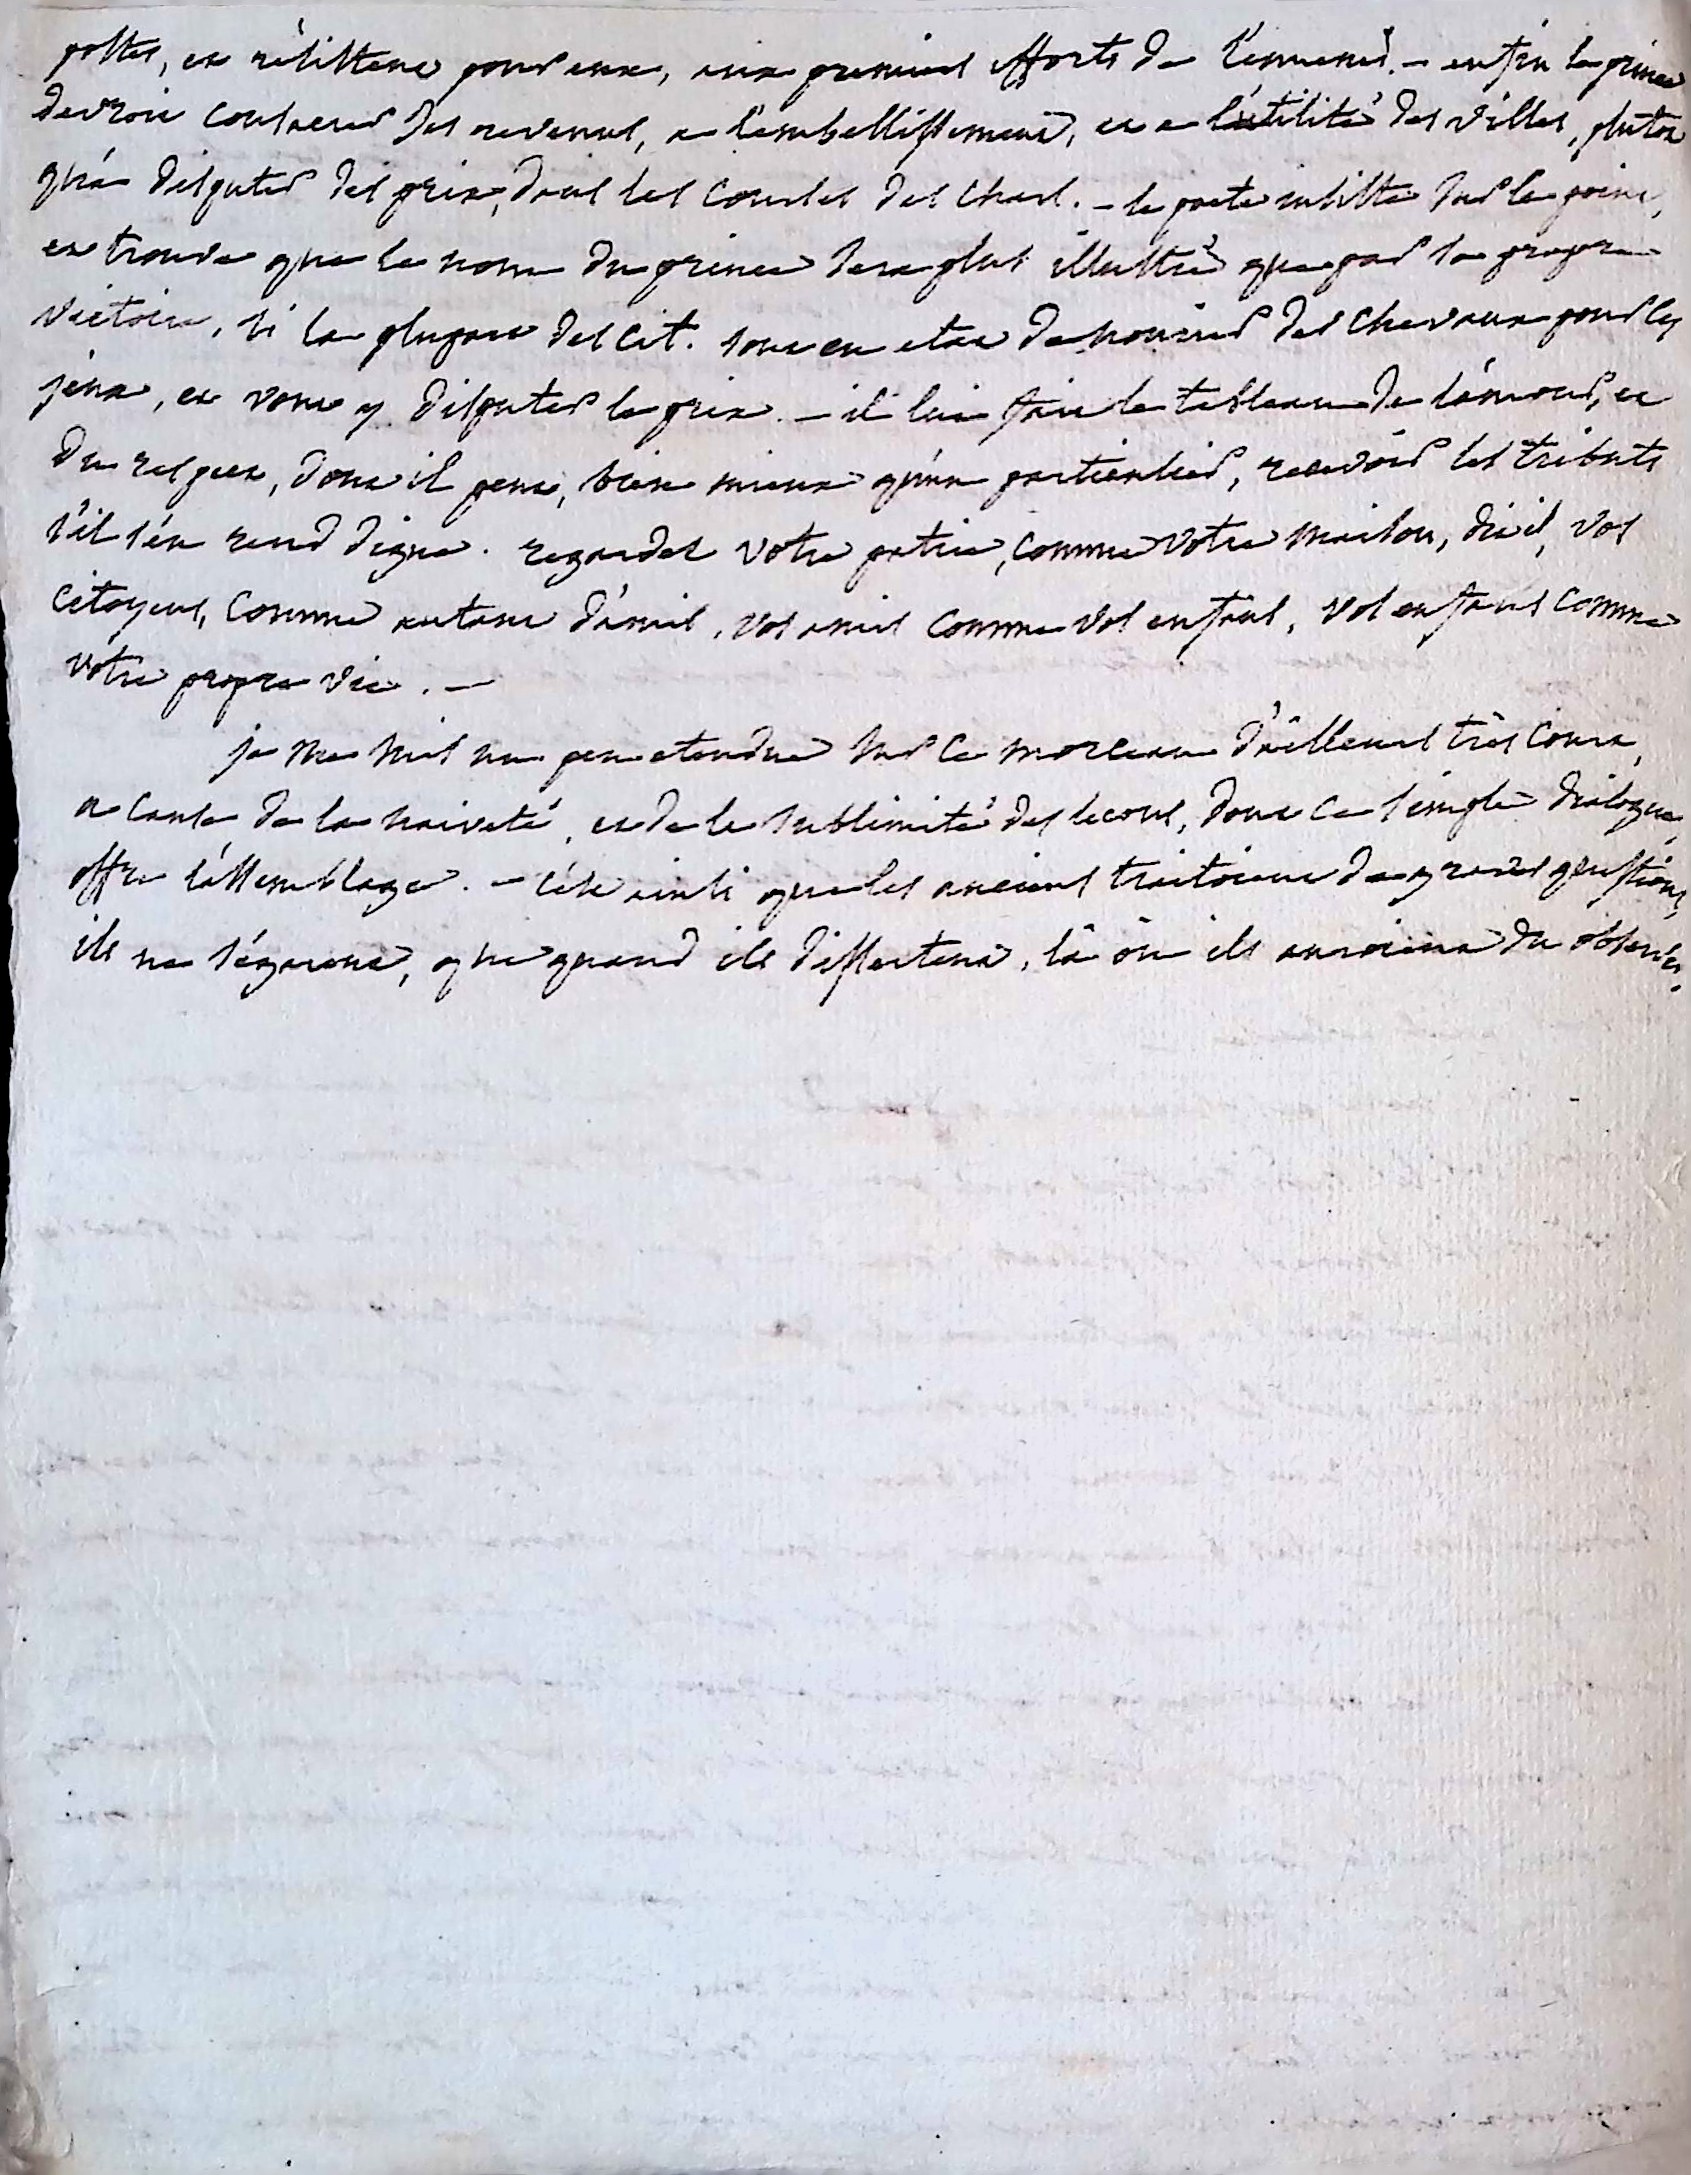 postes, et résistent pour eux, aux premiers efforts de l'ennemi. – enfin le prince
devroit consacrer ses revenus, a l'embellissement, et a l'utilité des villes, plutot
qu'a disputer des prix, dans les courses des chars. – le poete insiste sur le point,
et trouve que le nom du prince sera plus illustré que par sa propre
victoire, si la plupart des cit. sont en etat de nourrir des chevaux pour les
jeux, et vont y disputer le prix. – il lui fait le tableau de l'amour, et
du respect, dont il peut, bien mieux qu'un particulier, recevoir les tributs
s'il s'en rend digne. regardez votre patrie, comme votre maison, dit il, vos
citoyens, comme autant d'amis, vos amis comme vos enfans, vos enfans comme
votre propre vie. –
je me suis un peu etendue sur ce morceau d'ailleurs très court,
a cause de la naiveté, et de la sublimité des lecons, dont ce simple dialogue,
offre l'assemblage. – c'est ainsi que les anciens traitoient de grandes questions,
ils ne s'égarent, que quand ils dissertent, là où ils auroient du observer.